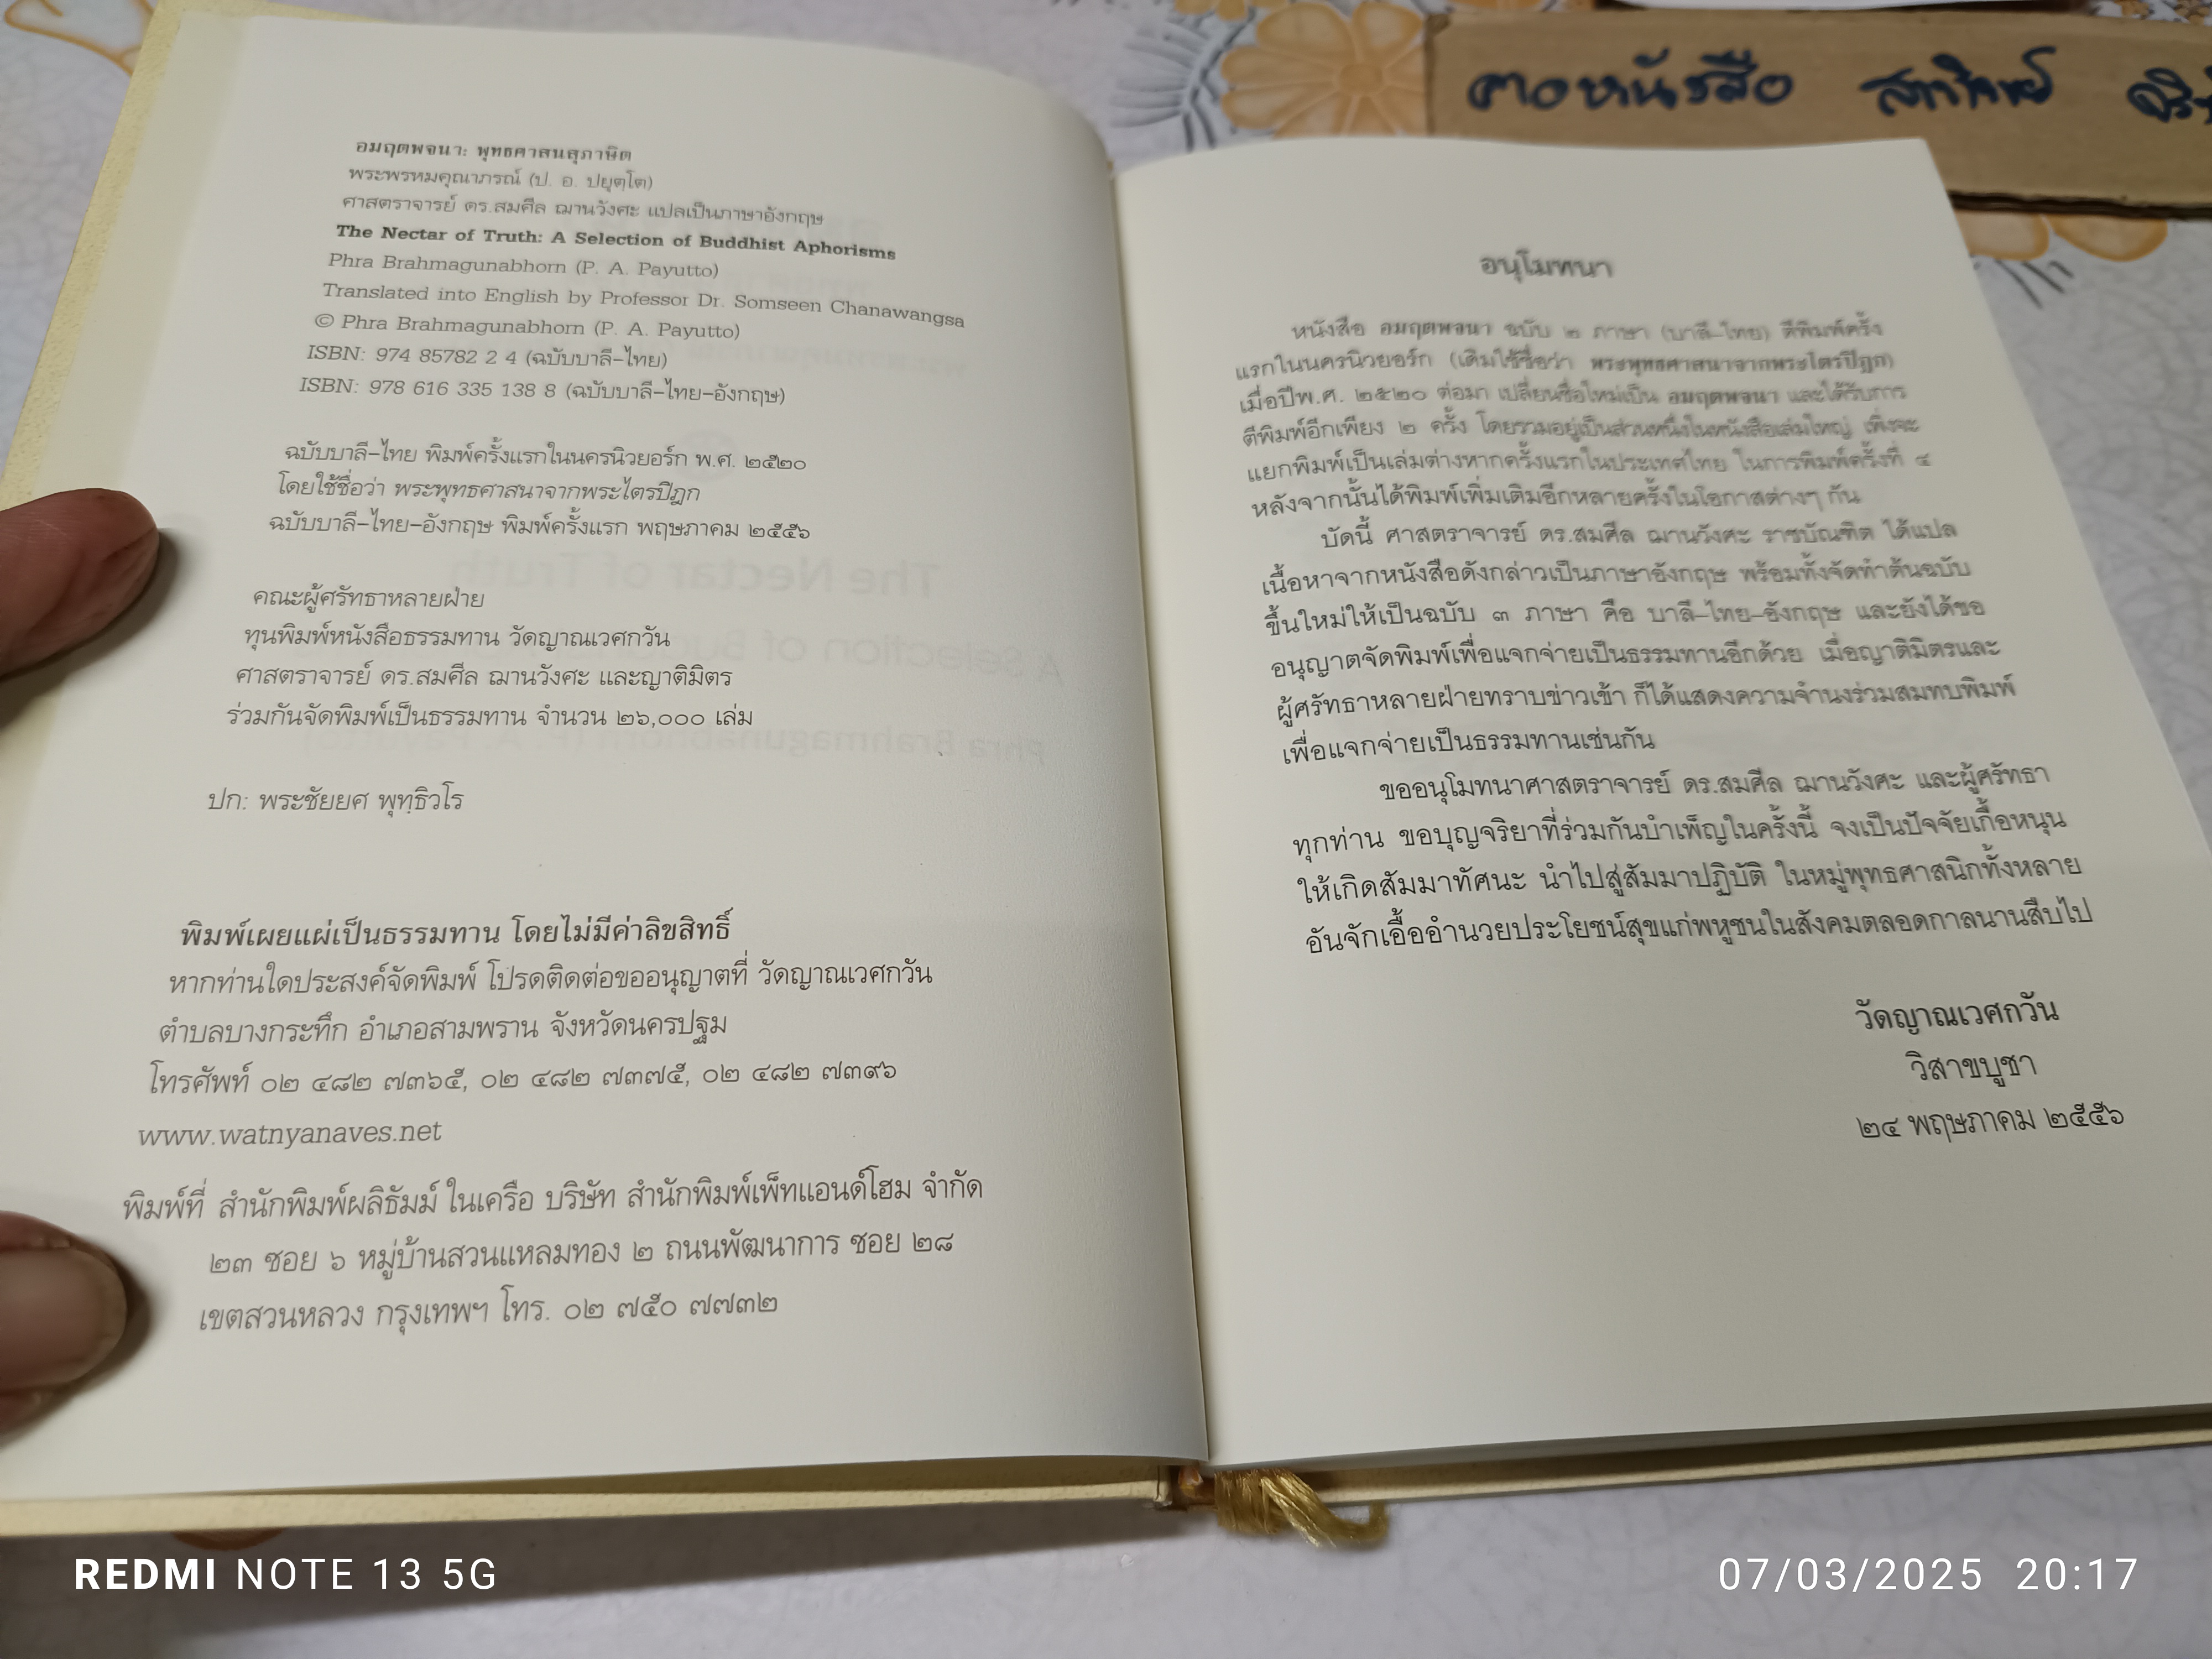 อมฤตพจนา: พุทธศาสนสุภาษิต
พระพรหมคุณาภรณ์ (ป. อ. ปยุตฺโต)
ศาสตราจารย์ ดร.สมศีล ฌานวังศะ แปลเป็นภาษาอังกฤษ
The Nectar of Truth: A Selection of Buddhist Aphorisms
Phra Brahmagunabhorn (P. A. Payutto)
Translated into English by Professor Dr. Somseen Chanawangsa
© Phra Brahmagunabhorn (P. A. Payutto)
ISBN: 974 85782 2 4 (ฉบับบาลี–ไทย)
ISBN: 978 616 335 138 8 (ฉบับบาลี–ไทย–อังกฤษ)
ฉบับบาลี–ไทย พิมพ์ครั้งแรกในนครนิวยอร์ก พ.ศ. ๒๕๒๐
โดยใช้ชื่อว่า พระพุทธศาสนาจากพระไตรปิฎก
ฉบับบาลี–ไทย–อังกฤษ พิมพ์ครั้งแรก พฤษภาคม ๒๕๕๖
คณะผู้ศรัทธาหลายฝ่าย
ทุนพิมพ์หนังสือธรรมทาน วัดญาณเวศกวัน
ศาสตราจารย์ ดร.สมศีล ฌานวังศะ และญาติมิตร
ร่วมกันจัดพิมพ์เป็นธรรมทาน จำนวน ๒๖,๐๐๐ เล่ม
ปก: พระชัยยศ พุทฺธิวโร
พิมพ์เผยแผ่เป็นธรรมทาน โดยไม่มีค่าลิขสิทธิ์
หากท่านใดประสงค์จัดพิมพ์ โปรดติดต่อขออนุญาตที่ วัดญาณเวศกวัน
ตำบลบางกระทึก อำเภอสามพราน จังหวัดนครปฐม
โทรศัพท์ ๐๒ ๔๘๒ ๗๓๖๕, ๐๒ ๔๘๒ ๗๓๗๕, ๐๒ ๔๘๒ ๗๓๙๖
www.watnyanaves.net
พิมพ์ที่ สำนักพิมพ์ผลิธัมม์ ในเครือ บริษัท สำนักพิมพ์เพ็ทแอนด์โฮม จำกัด
๒๓ ซอย ๖ หมู่บ้านสวนแหลมทอง ๒ ถนนพัฒนาการ ซอย ๒๘
เขตสวนหลวง กรุงเทพฯ โทร. ๐๒ ๗๕๐ ๗๗๓๒
อนุโมทนา
หนังสือ อมฤตพจนา ฉบับ ๒ ภาษา (บาลี–ไทย) ตีพิมพ์ครั้ง
แรกในนครนิวยอร์ก (เดิมใช้ชื่อว่า พระพุทธศาสนาจากพระไตรปิฎก)
เมื่อปีพ.ศ. ๒๕๒๐ ต่อมา เปลี่ยนชื่อใหม่เป็น อมฤตพจนา และได้รับการ
ตีพิมพ์อีกเพียง ๒ ครั้ง โดยรวมอยู่เป็นส่วนหนึ่งในหนังสือเล่มใหญ่ เพิ่งจะ
แยกพิมพ์เป็นเล่มต่างหากครั้งแรกในประเทศไทย ในการพิมพ์ครั้งที่ ๔
หลังจากนั้นได้พิมพ์เพิ่มเติมอีกหลายครั้งในโอกาสต่างๆ กัน
บัดนี้ ศาสตราจารย์ ดร.สมศีล ฌานวังศะ ราชบัณฑิต ได้แปล
เนื้อหาจากหนังสือดังกล่าวเป็นภาษาอังกฤษ พร้อมทั้งจัดทำต้นฉบับ
ขึ้นใหม่ให้เป็นฉบับ ๓ ภาษา คือ บาลี–ไทย–อังกฤษ และยังได้ขอ
อนุญาตจัดพิมพ์เพื่อแจกจ่ายเป็นธรรมทานอีกด้วย เมื่อญาติมิตรและ
ผู้ศรัทธาหลายฝ่ายทราบข่าวเข้า ก็ได้แสดงความจำนงร่วมสมทบพิมพ์
เพื่อแจกจ่ายเป็นธรรมทานเช่นกัน
ขออนุโมทนาศาสตราจารย์ ดร.สมศีล ฌานวังศะ และผู้ศรัทธา
ทุกท่าน ขอบุญจริยาที่ร่วมกันบำเพ็ญในครั้งนี้ จงเป็นปัจจัยเกื้อหนุน
ให้เกิดสัมมาทัศนะ นำไปสู่สัมมาปฏิบัติ ในหมู่พุทธศาสนิกทั้งหลาย
อันจักเอื้ออำนวยประโยชน์สุขแก่พหูชนในสังคมตลอดกาลนานสืบไป
วัดญาณเวศกวัน
วิสาขบูชา
๒๔ พฤษภาคม ๒๕๕๖
REDMI NOTE 13 5G
07/03/2025 20:17